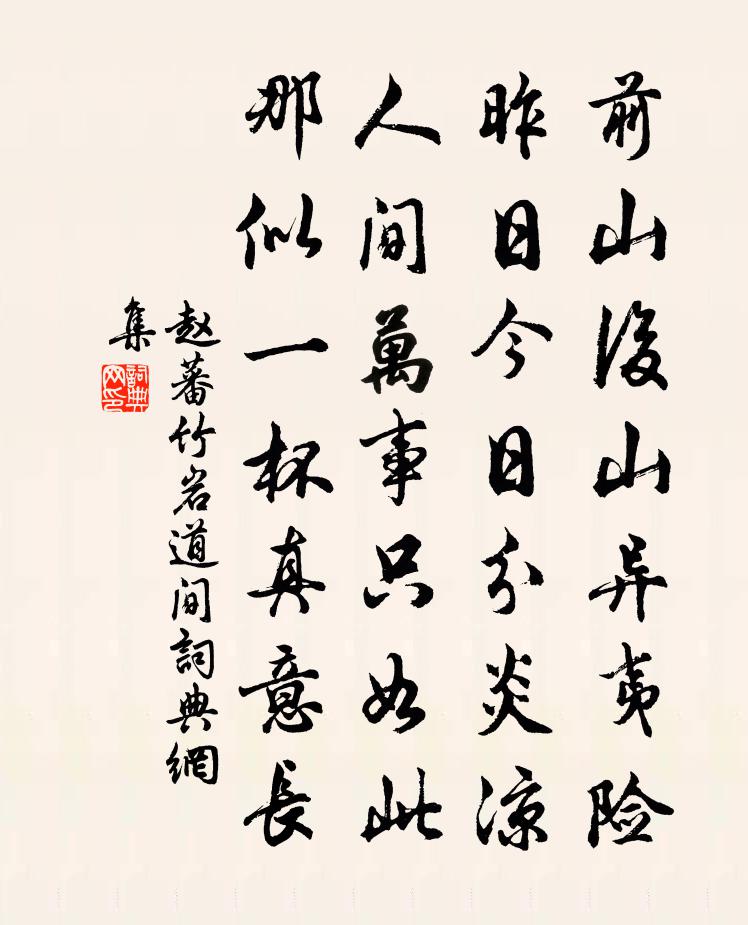 前山後山异夷险
昨日今日分炎凉
人间萬事只如此
那似一杯真意長
赵蕃竹岩道间詞典網
集
詞典
网印